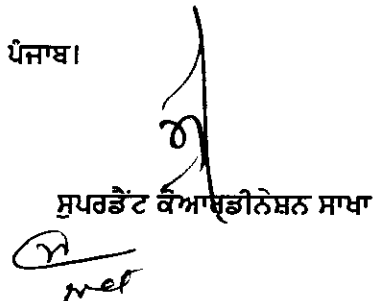 ਪੰਜਾਬ।
ਸੁਪਰਡੈਂਟ ਕੋਆਰਡੀਨੇਸ਼ਨ ਸਾਖਾ